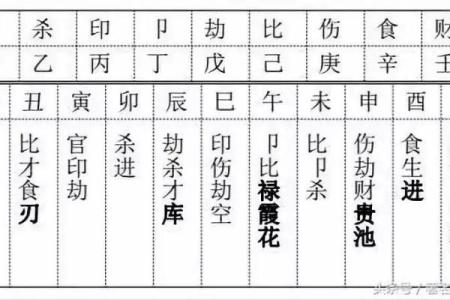 杀 印 卩 劫 比 伤 食 财
乙 丙 丁 戊 己 庚 辛 壬
丑 寅 卯 辰 巳 午 未 申 酉
比才食刃 官印劫 杀进 劫杀才库 印伤劫空 卩比禄霞花 比卩杀 伤劫财贵池 食生进
头条号